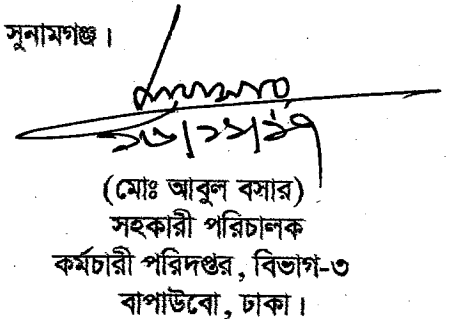 সুনামগঞ্জ।
(মোঃ আবুল বসার)
সহকারী পরিচালক
কর্মচারী পরিদপ্তর, বিভাগ-৩
বাপাউবো, ঢাকা।